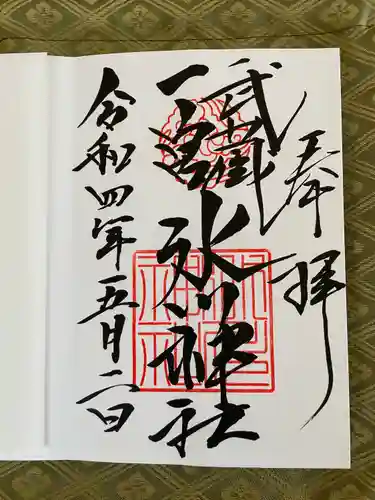 奉拝
武蔵
一之宮
氷川神社
令和四年五月二日